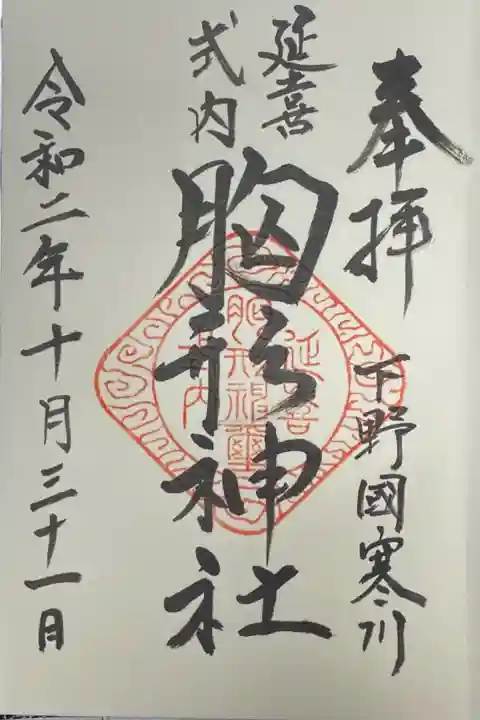 奉拝
下野國寒川
延喜
式内
胸形神社
令和二年十月三十一日
延喜
式内